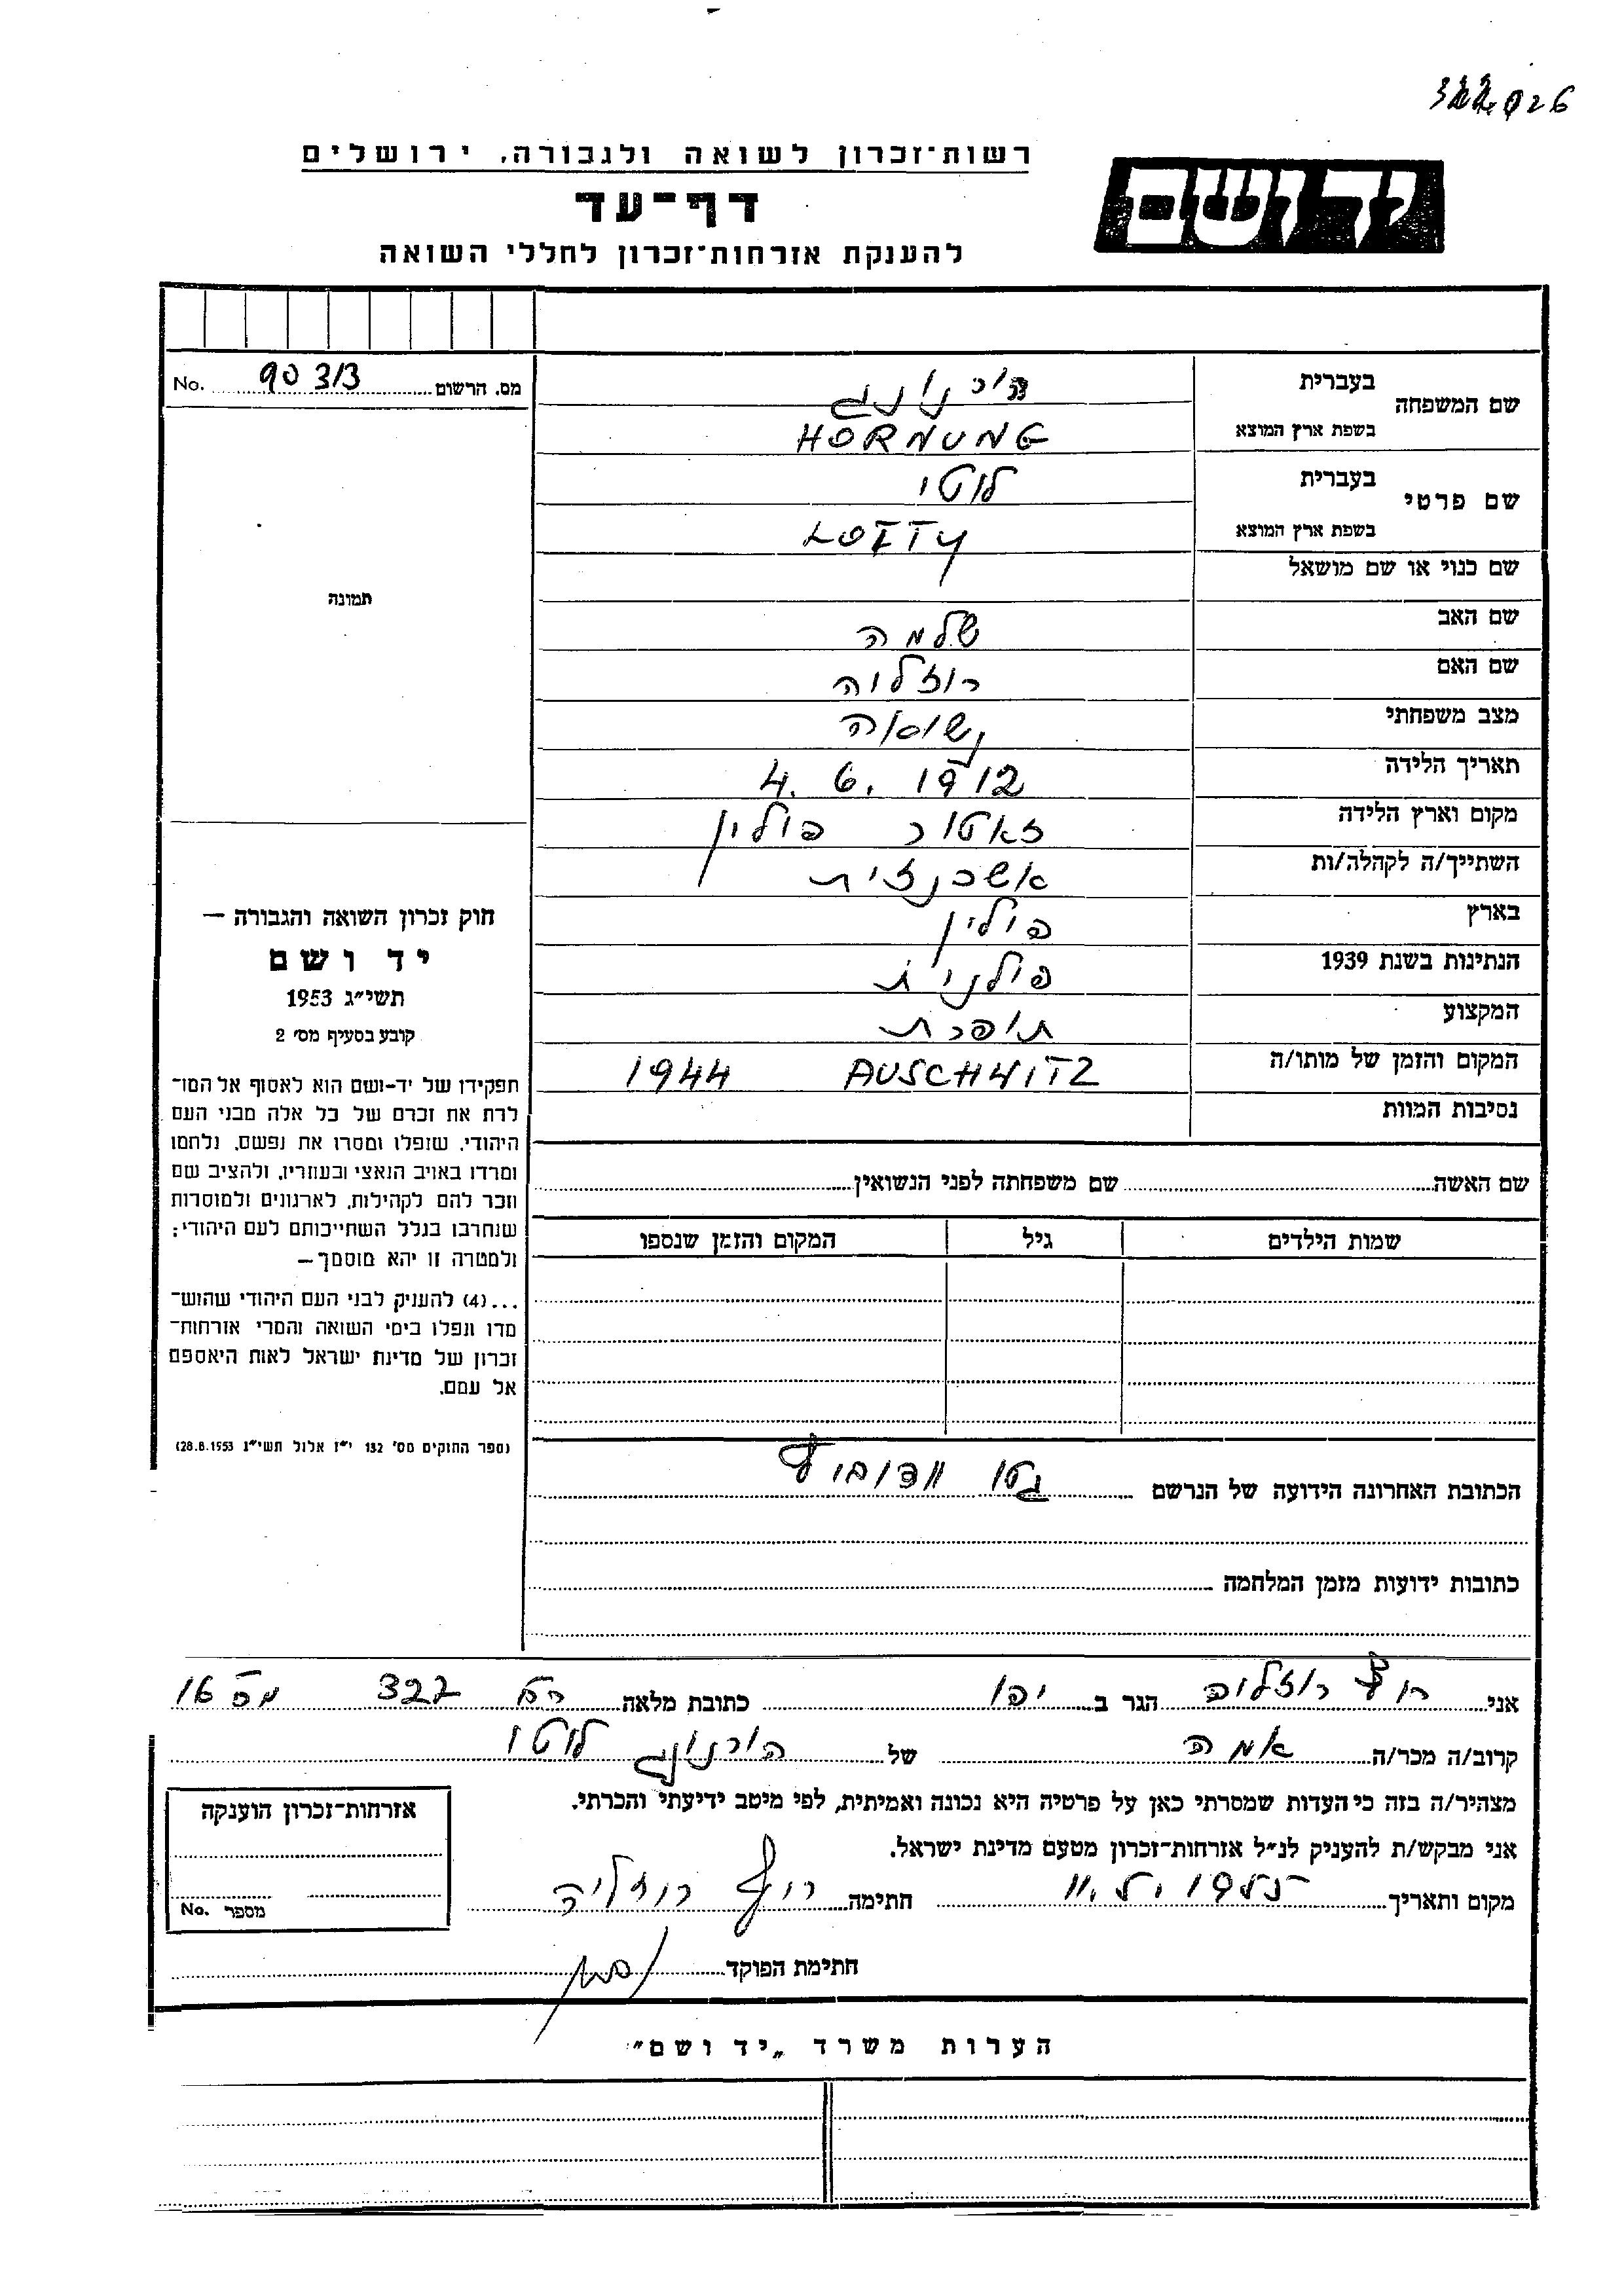 322026
רשות־זכרון לשואה ולגבורה, ירושלים
יד ושם
דף־עד
להענקת אזרחות־זכרון לחללי השואה
מס. הרשום 90 313 No.
תמונה
שם המשפחה
בעברית הורנונג
בשפת ארץ המוצא HORNUNG
שם פרטי
בעברית לוטי
בשפת ארץ המוצא LOTTY
שם כנוי או שם מושאל
שם האב שלמה
שם האם רוזליה
מצב משפחתי נשואה
תאריך הלידה 4. 6. 1912
מקום וארץ הלידה זאטור פולין
השתייך/ה לקהלה/ות אשכנזית
בארץ פולין
הנתינות בשנת 1939 פולנית
המקצוע תופרת
המקום והזמן של מותו/ה AUSCHWITZ 1944
נסיבות המוות
חוק זכרון השואה והגבורה —
יד ושם
תשי״ג 1953
קובע בסעיף מס׳ 2
תפקידן של יד־ושם הוא לאסוף אל המו־
לדת את זכרם של כל אלה מבני העם
היהודי, שנפלו ומסרו את נפשם, נלחמו
ומרדו באויב הנאצי ובעוזריו, ולהציב שם
וזכר להם לקהילות, לארגונים ולמוסדות
שנחרבו בגלל השתייכותם לעם היהודי;
ולמטרה זו יהא מוסמך —
...(4) להעניק לבני העם היהודי שהוש־
מדו ונפלו בימי השואה והמרי אזרחות־
זכרון של מדינת ישראל לאות היאספם
אל עמם.
(ספר החוקים מס׳ 132 י״ז אלול תשי״ג 28.8.1953)
שם האשה שם משפחתה לפני הנשואין
שמות הילדים גיל המקום והזמן שנספו
הכתובת האחרונה הידועה של הנרשם גטו
כתובות ידועות מזמן המלחמה
אני רוזליה הגר ב יפו כתובת מלאה רח 322 מס 16
קרוב/ה מכר/ה אמה של הורנונג לוטי
מצהיר/ה בזה כי העדות שמסרתי כאן על פרטיה היא נכונה ואמיתית, לפי מיטב ידיעתי והכרתי.
אני מבקש/ת להעניק לנ״ל אזרחות־זכרון מטעם מדינת ישראל.
מקום ותאריך חתימה רוזליה
חתימת הפוקד
אזרחות־זכרון הוענקה
מספר No.
הערות משרד „יד ושם״